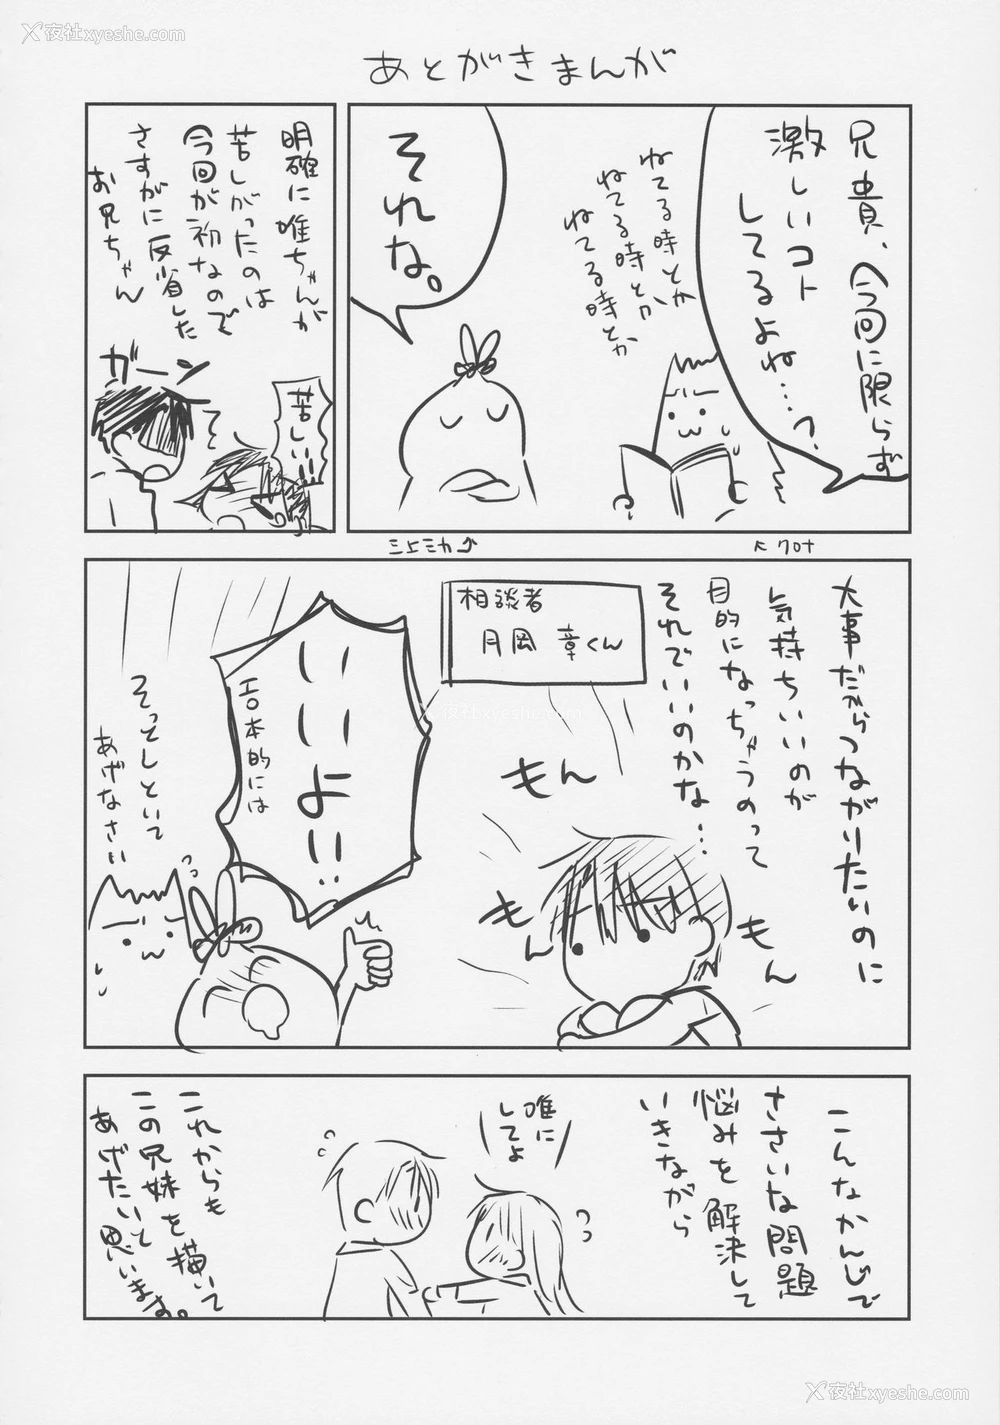 夜社xyeshe.com
あとがきまんが
兄貴、今回に限らず
激しいコト
してるよね…?
ねてる時とか
ねてる時とか
ねてる時とか
それな。
明確に唯ちゃんが
苦しがったのは
今回が初なので
さすがに反省した
お兄ちゃん
ガーン
苦しい!!
三上ミカ
大事だからつながりたいのに
気持ちいいのが
目的になっちゃうのって
それでいいのかな…
相談者
月岡 章くん
もん
もん
もん
いいよい!!
エロ本的には
そっとしといて
あげなさい
夜社xyeshe.com
こんなかんじで
ささいな問題
悩みを解決して
いきながら
唯に
してよ
これからも
この兄妹を描いて
あげたいと
思います。
夜社xyeshe.com